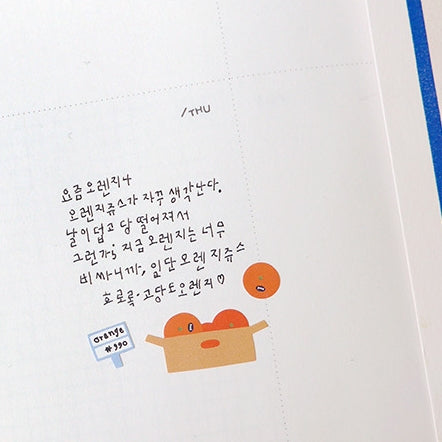 /THU
요즘 오렌지나
오렌지쥬스가 자꾸 생각난다.
날이 덥고 당 떨어져서
그런가; 지금 오렌지는 너무
비싸니까, 일단 오렌지쥬스
호로록. 고당도오렌지♡
orange
#990